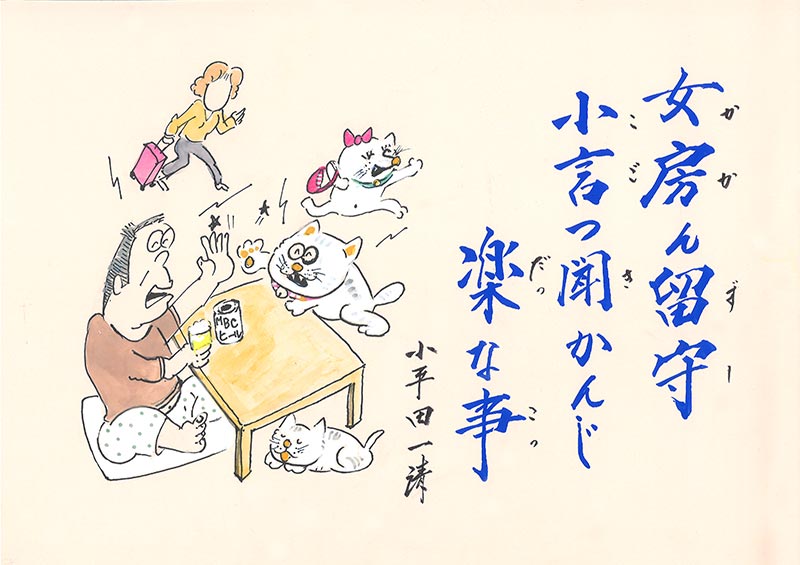 女房ん留守
かかずしー
小言つ聞かんじ
こごき
楽な事
だっこっ
小平田一清
MBC
ビール